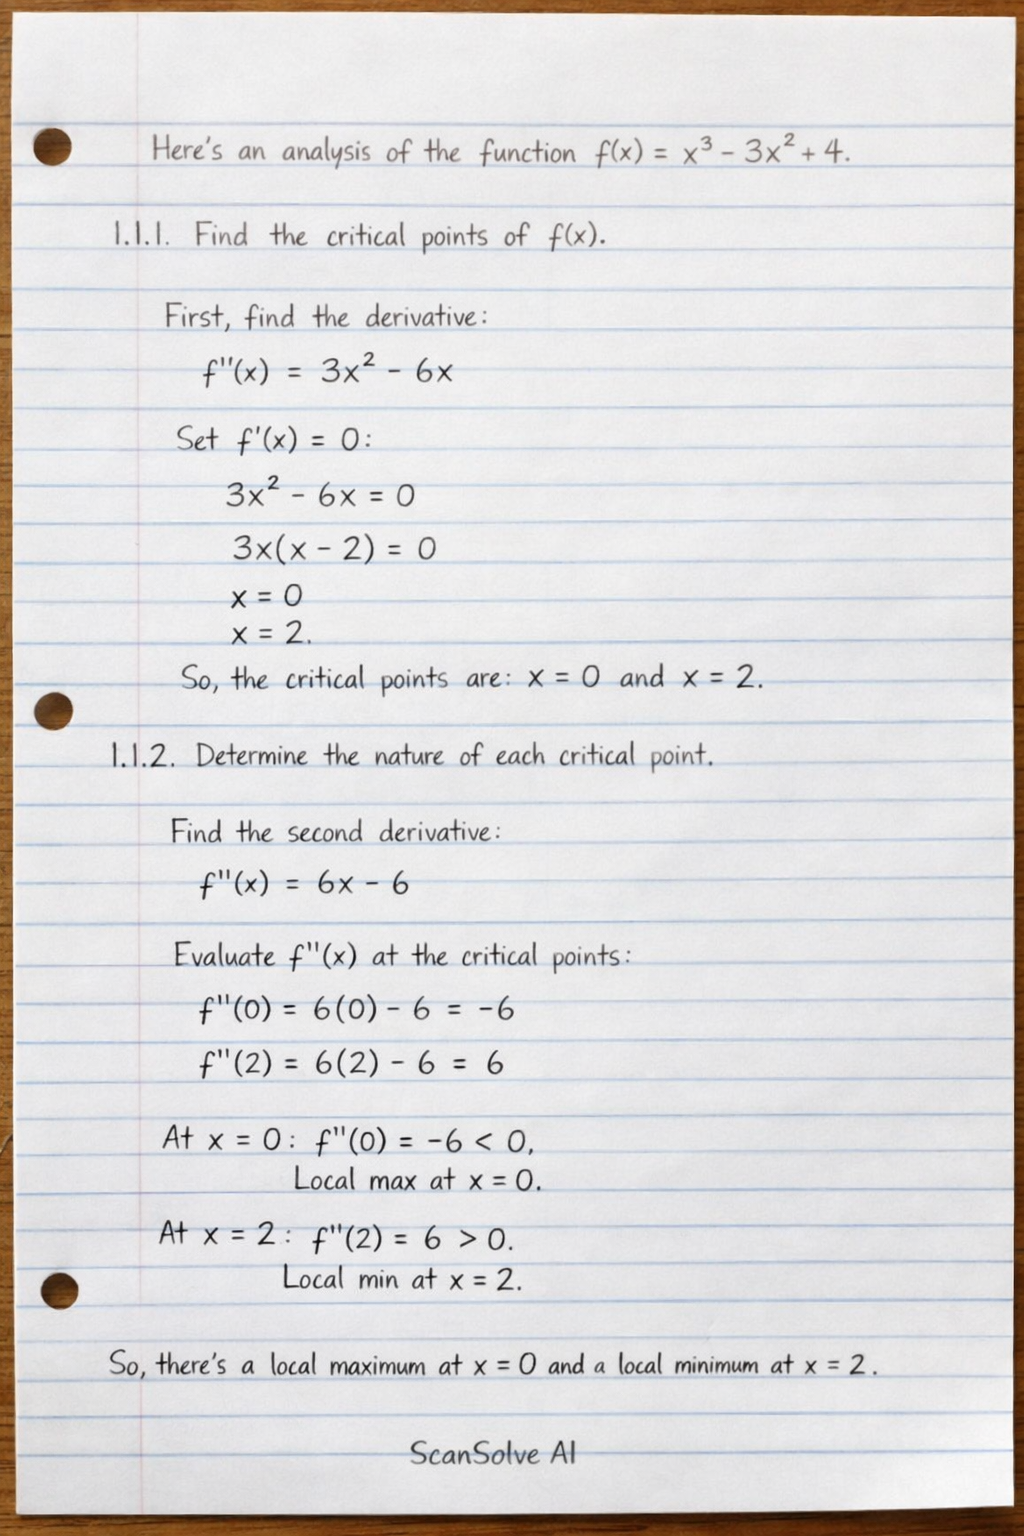 Here's an analysis of the function f(x) = x³ - 3x² + 4.
1.1.1. Find the critical points of f(x).
First, find the derivative:
f''(x) = 3x² - 6x
Set f'(x) = 0:
3x² - 6x = 0
3x(x - 2) = 0
x = 0
x = 2.
So, the critical points are: x = 0 and x = 2.
1.1.2. Determine the nature of each critical point.
Find the second derivative:
f''(x) = 6x - 6
Evaluate f''(x) at the critical points:
f''(0) = 6(0) - 6 = -6
f''(2) = 6(2) - 6 = 6
At x = 0: f''(0) = -6 < 0,
Local max at x = 0.
At x = 2: f''(2) = 6 > 0.
Local min at x = 2.
So, there's a local maximum at x = 0 and a local minimum at x = 2.
ScanSolve AI